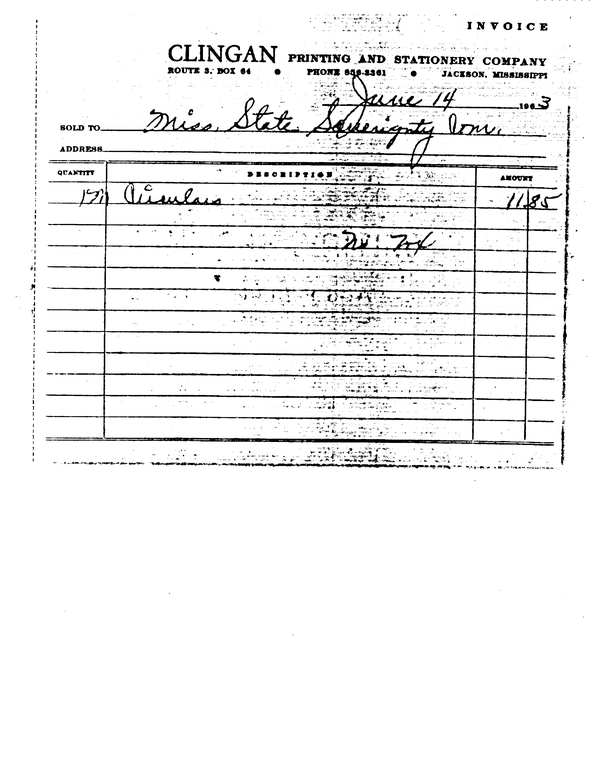 INVOICE
CLINGAN PRINTING AND STATIONERY COMPANY
ROUTE 3, BOX 64 • PHONE 856-2361 • JACKSON, MISSISSIPPI
June 14 1963
SOLD TO Miss. State Sovereignty Com.
ADDRESS
QUANTITY DESCRIPTION AMOUNT
1M Circulars 11.85
No Tax